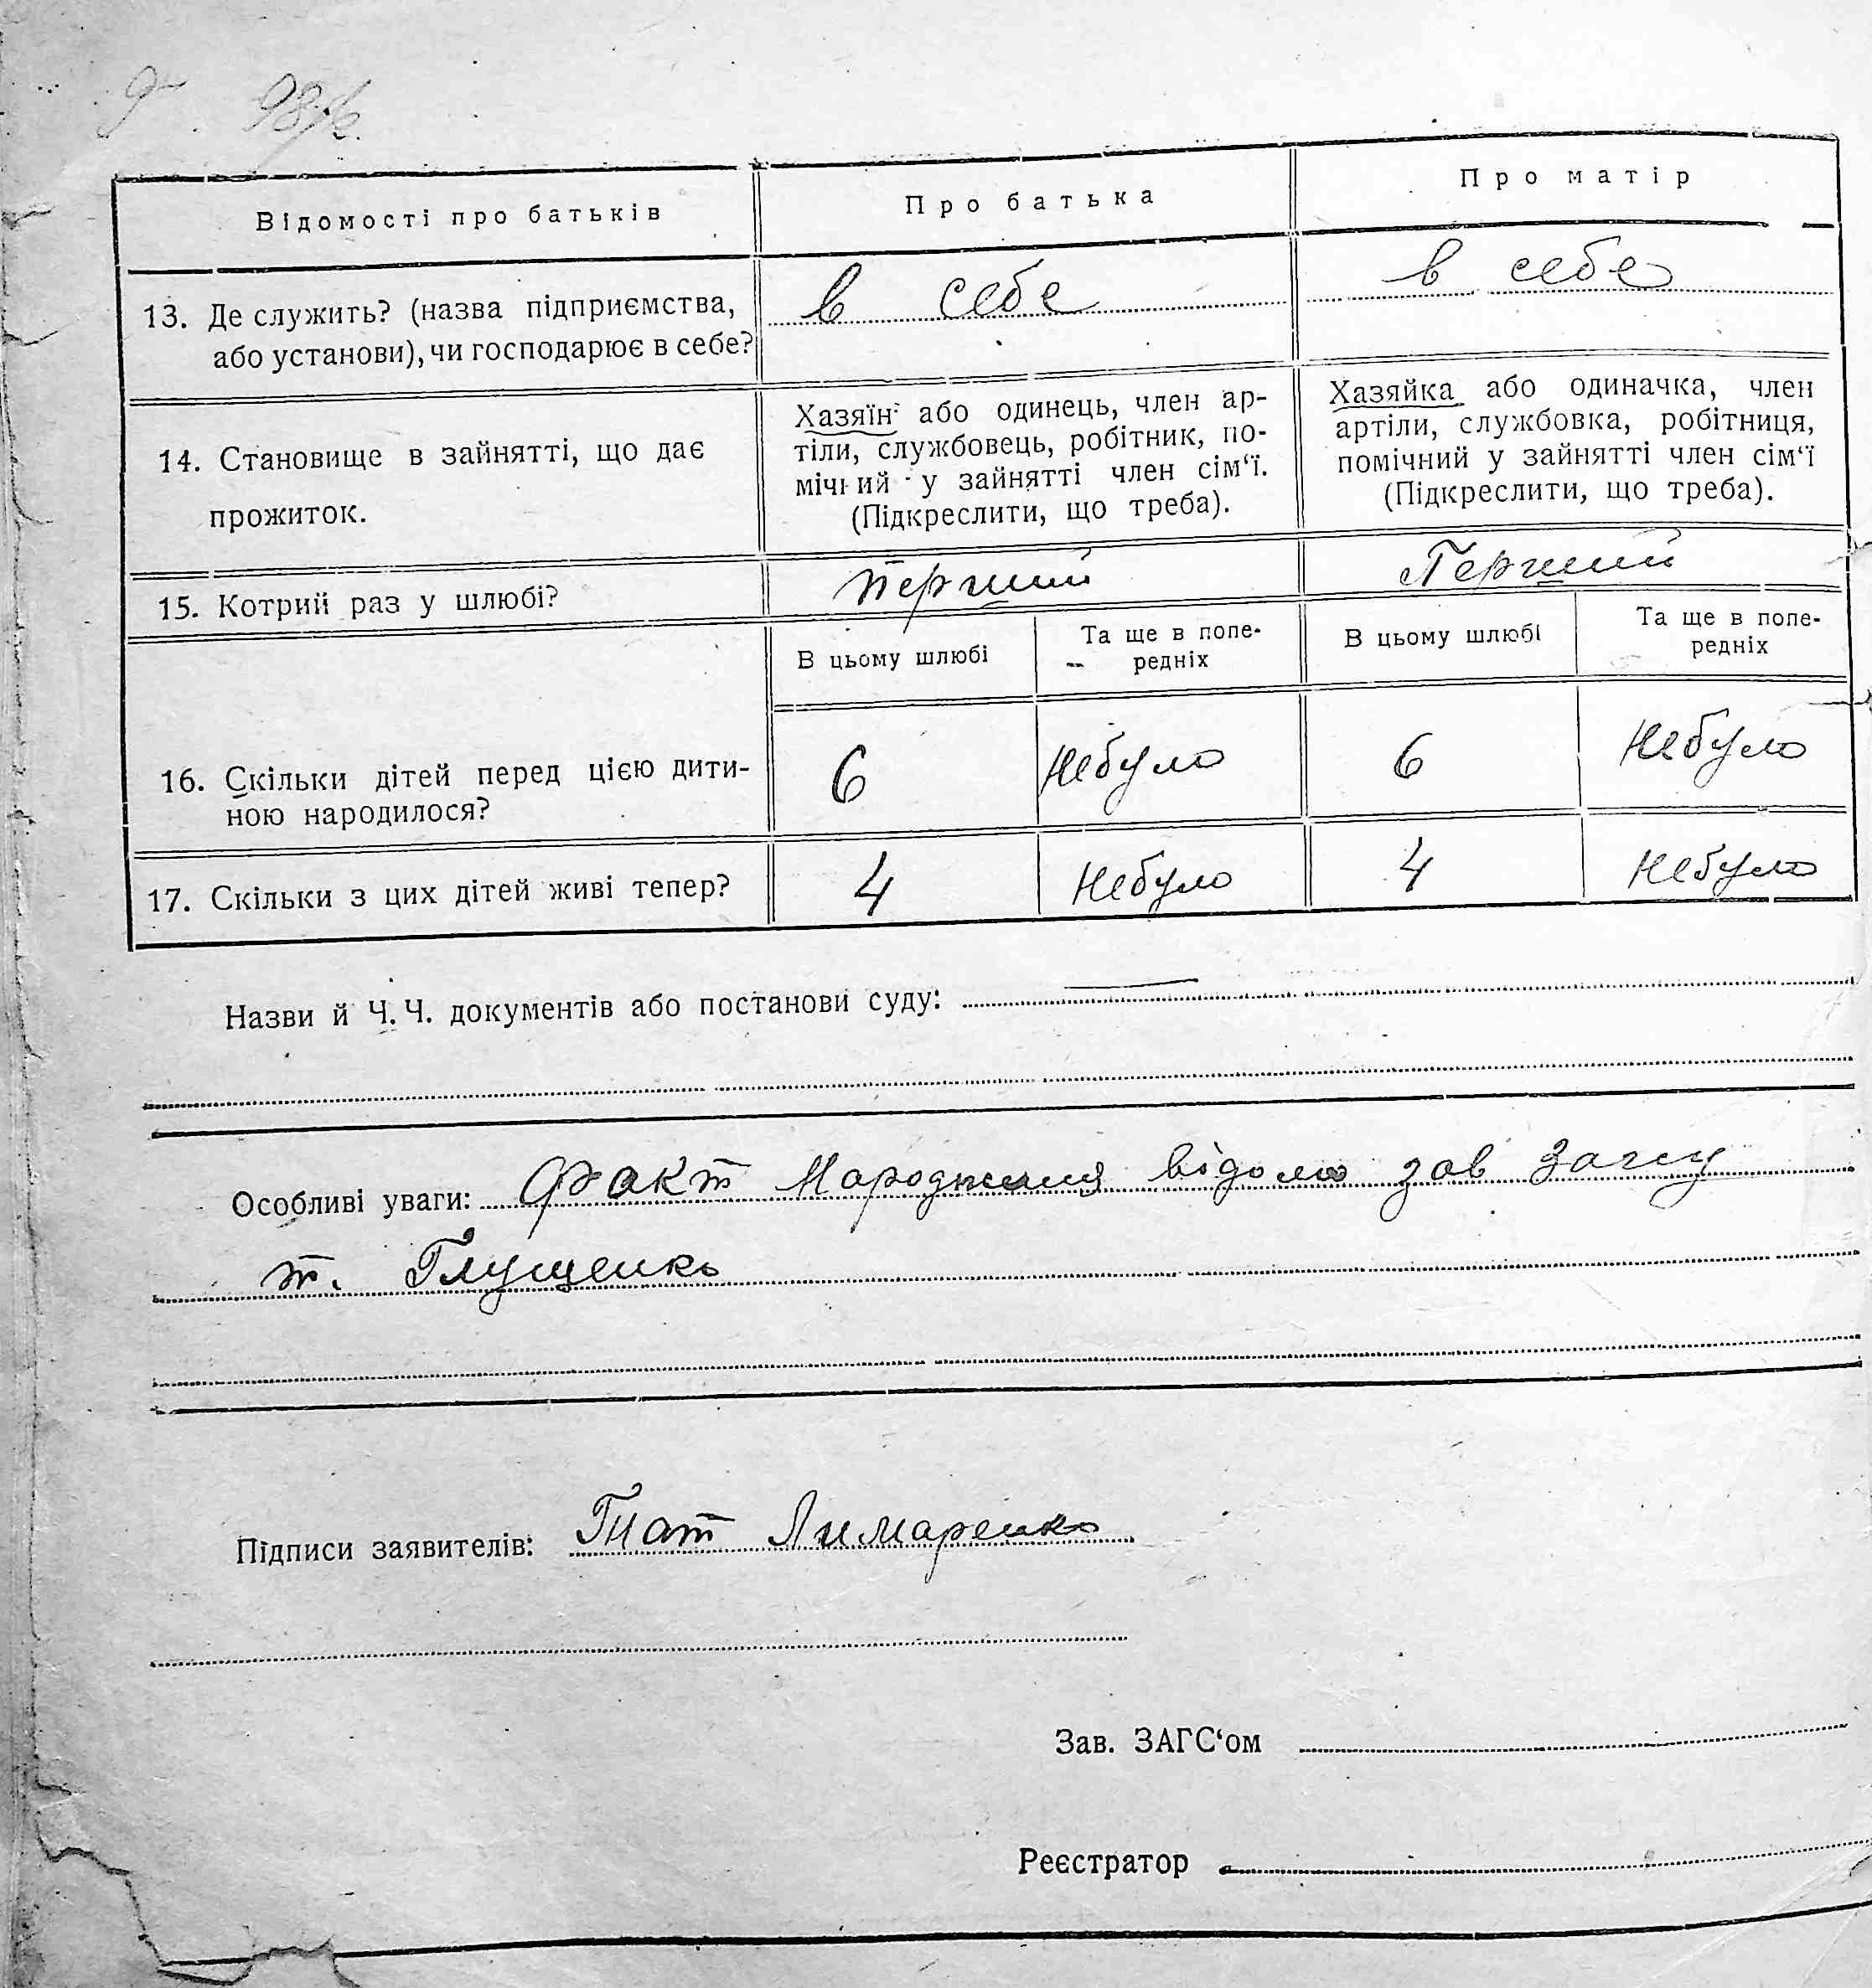 Відомості про батьків
Про батька
Про матір
13. Де служить? (назва підприємства,
або установи), чи господарює в себе?
в себе
в себе
14. Становище в зайнятті, що дає
прожиток.
Хазяїн або одинець, член ар-
тіли, службовець, робітник, по-
мічний у зайнятті член сім‘ї.
(Підкреслити, що треба).
Хазяйка або одиначка, член
артіли, службовка, робітниця,
помічний у зайнятті член сім‘ї
(Підкреслити, що треба).
15. Котрий раз у шлюбі?
перший
Перший
В цьому шлюбі
Та ще в попе-
редніх
В цьому шлюбі
Та ще в попе-
редніх
16. Скільки дітей перед цією дити-
ною народилося?
6
Небуло
6
Небуло
17. Скільки з цих дітей живі тепер?
4
Небуло
4
Небуло
Назви й Ч. Ч. документів або постанови суду: —
Особливі уваги: Факт Народження відомо зав Загсу
т. Глущенко
Підписи заявителів: Гнат Лимаренко
Зав. ЗАГС‘ом
Реєстратор